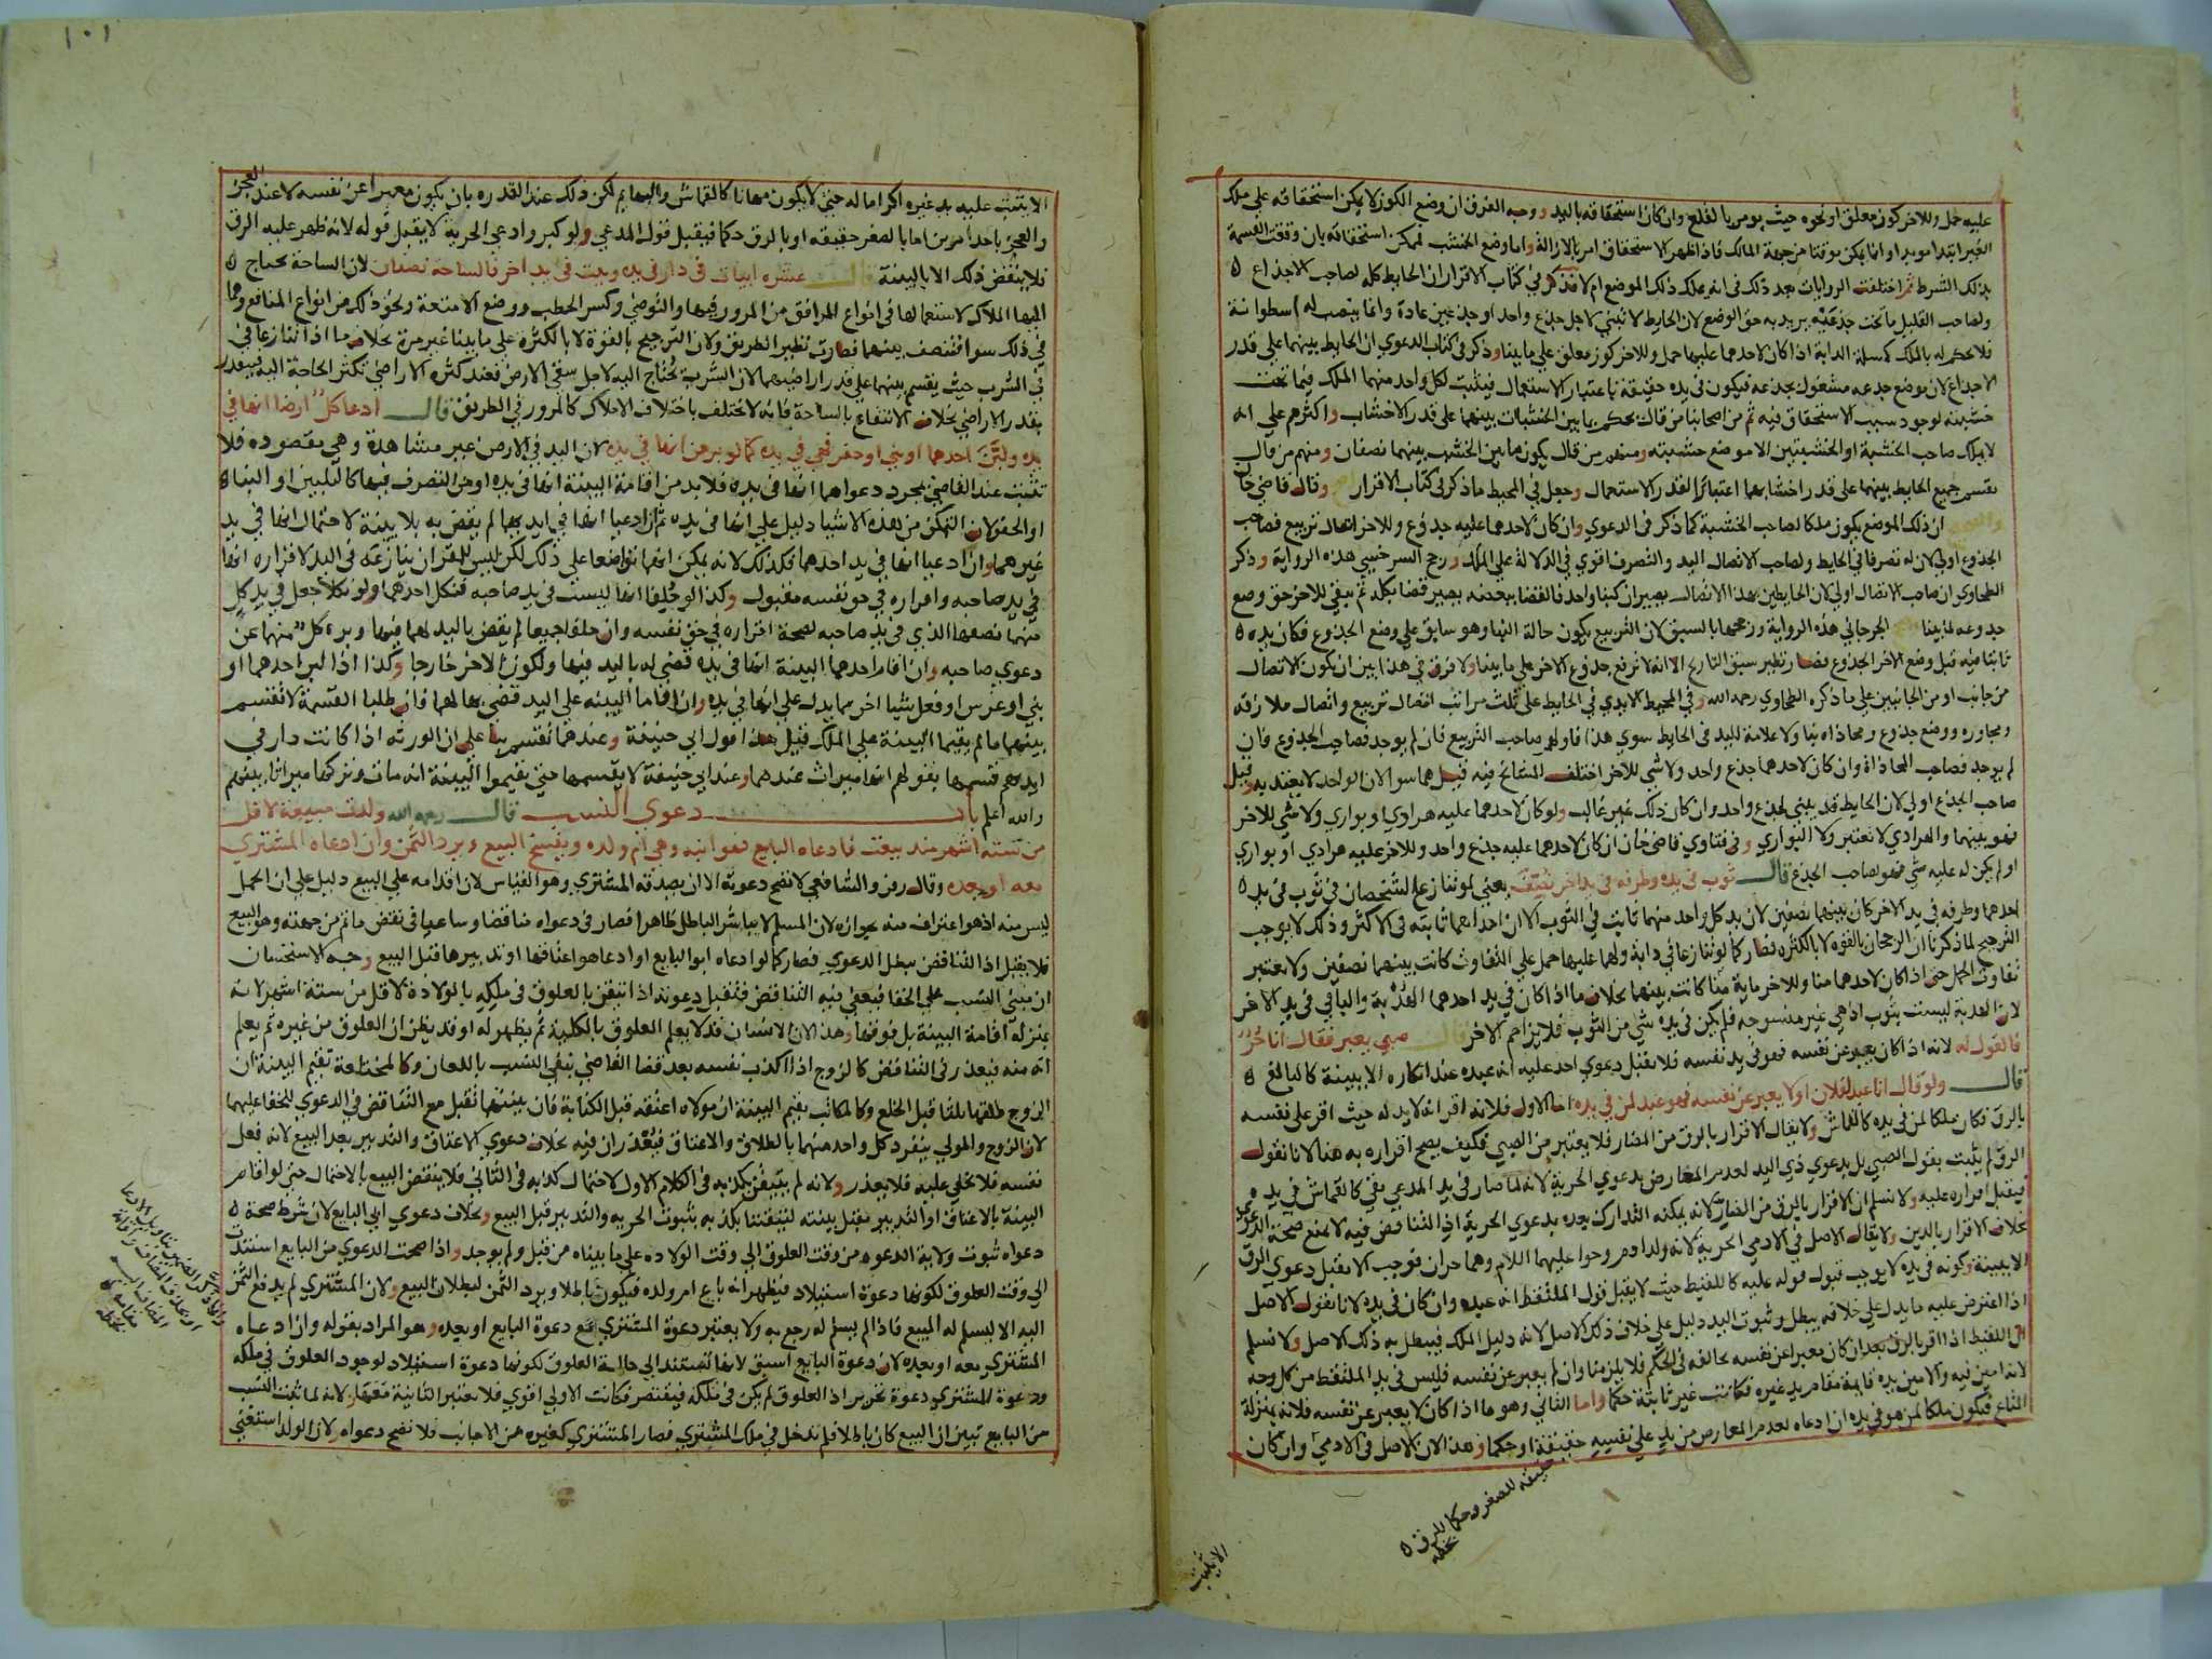 عليه حمل وللاخر كوز معلق او نحوه حيث يومر بالقلع وان كان استحقاقه باليد ووجه الفرق ان وضع الكوز لا يمكن استحقاقه على ملك
الغير ابتدا موبدا وانما يمكن موقتا من جهة المالك فاذا ظهر الاستحقاق امر بالازالة واما وضع الخشب لممكن استحقاقه بان وقعت القسمة
بذلك الشرط ثم اختلفت الروايات بعد ذلك في انه يملك ذلك الموضع ام لا فذكر في كتاب الاقرار ان الحايط كله لصاحب الاجذاع
ولصاحب القليل ما تحت جذعه يريد به حق الوضع لان الحايط لا تبني لاجل جذع واحد او جذعين عادة وانما ينصب له اسطوانة
فلا يحكم له بالملك كمسلة الدابة اذا كان لاحدهما عليها حمل وللاخر كوز معلق على ما بينا وذكر في كتاب الدعوي ان الحايط بينهما على قدر
الاجذاع لان موضع جذعه مشغول بجذعه فيكون في يده حقيقة باعتبار الاستعمال فيثبت لكل واحد منهما الملك فيما تحت
خشبته لوجود سبب الاستحقاق فيه ثم من اصحابنا من قال يحكم بما بين الخشبات بينهما على قدر الاخشاب واكثرهم على انه
لا يملك صاحب الخشبة او الخشبتين الا موضع خشبته ومنهم من قال يكون ما بين الخشب بينهما نصفان ومنهم من قال
يقسم جميع الحايط بينهما على قدر اخشابهما اعتبارا لقدر الاستعمال وجعل في المحيط ما ذكر في كتاب الاقرار وقال قاضي خان
ان ذلك الموضع يكون ملكا لصاحب الخشبة كما ذكر في الدعوي وان كان لاحدهما عليه جذوع وللاخر اتصال تربيع فصاحب
الجذوع اولي لان له تصرفا في الحايط ولصاحب الاتصال اليد والتصرف اقوي في الدلالة على الملك ورجح السرخسي هذه الرواية وذكر
الطحاوي ان صاحب الاتصال اولي لان الحايطين بهذا الاتصال يصيران كبنا واحد فالقضا ببعضه يصير قضا بكله ثم يبقي للاخر حق وضع
جذوعه لما بينا الجرجاني هذه الرواية ورجحها بالسبق لان التربيع يكون حالة البنا وهو سابق على وضع الجذوع فكان يده
ثابتا فيه قبل وضع الاخر الجذوع فصار نظير سبق التاريخ الا انه لا ترفع جذوع الاخر على ما بينا ولا فرق في هذا بين ان يكون الاتصال
من جانب او من الجانبين على ما ذكره الطحاوي رحمه الله وفي المحيط الايدي في الحايط على ثلث مراتب اتصال تربيع واتصال ملازقة
ومجاورة ووضع جذوع ومحاذاة بنا ولا علامة لليد في الحايط سوي هذا فاولهم صاحب التربيع فان لم يوجد فصاحب الجذوع فان
لم يوجد فصاحب المحاذاة وان كان لاحدهما جذع واحد ولا شي للاخر اختلف المشايخ فيه قيل هما سوا لان الواحد لا يعتد به وقيل
صاحب الجذع اولي لان الحايط قد يبني لجذع واحد وان كان ذلك غير غالب ولو كان لاحدهما عليه هرادي او بواري ولا شي للاخر
فهو بينهما والهرادي لا تعتبر ولا البواري وفي فتاوي قاضي خان ان كان لاحدهما عليه جذع واحد وللاخر عليه هرادي او بواري
او لم يكن له عليه شي فهو لصاحب الجذع قال ثوب في يده وطرفه في يد اخر نصف يعني لو تنازع الشخصان في ثوب في يد
احدهما وطرفه في يد الاخر كان بينهما نصفين لان يد كل واحد منهما ثابت في الثوب الا ان احداهما ثابته في الاكثر وذلك لا يوجب
الترجيح لما ذكرنا ان الرجحان بالقوه لا بالكثره فصار كما لو تنازعا في دابة ولهما عليها حمل على التفاوت كانت بينهما نصفين ولا يعتبر
تفاوت الحمل حتي اذا كان لاحدهما منا وللاخر ماية منا كانت بينهما بخلاف ما اذا كان في يد احدهما الهدبة والباقي في يد الاخر
لان الهدبة ليست بثوب اذ هي غير منسوجه فلم يكن في يده شي من الثوب فلا يزاحم الاخر قال صبي يعبر فقال انا حر
فالقول له لانه اذا كان يعبر عن نفسه فهو في يد نفسه فلا يقبل دعوي احد عليه انه عبده عند انكاره الا ببينة كالبالغ
قال ولو قال انا عبد لفلان او لا يعبر عن نفسه فهو عبد لمن في يده اما الاول فلانه اقر انه لا يد له حيث اقر على نفسه
بالرق فكان ملكا لمن في يده كالقماش ولا يقال الاقرار بالرق من المضار فلا يعتبر من الصبي فكيف يصح اقراره به هنا لانا نقول
الرق لم يثبت بقول الصبي بل بدعوي ذي اليد لعدم المعارض بدعوي الحرية لانه لما صار في يد المدعي بقي كالقماش في يده
فيقبل اقراره عليه ولا نسلم ان الاقرار بالرق من المضار لانه يمكنه التدارك بعده بدعوي الحرية اذ التناقض فيه لا يمنع صحة الدعوي
بخلاف الاقرار بالدين ولا يقال الاصل في الادمي الحرية لانه ولد ادم وحوا عليهما السلام وهما حران فوجب ان لا يقبل دعوي الرق
الا ببينة وكونه في يده لا يوجب قبول قوله عليه كاللقيط حيث لا يقبل قول الملتقط انه عبده وان كان في يده لانا نقول الاصل
اذا اعترض عليه ما يدل على خلافه يبطل وثبوت اليد دليل على خلاف ذلك الاصل لانه دليل الملك فيبطل به ذلك الاصل ولا نسلم
ان اللقيط اذا اقر بالرق بعد ان كان معبرا عن نفسه يخالفه في الحكم فلا يلزمنا وان لم يعبر عن نفسه فليس في يد الملتقط من كل وجه
لانه امين فيه والامين يده قايمة مقام يد غيره فكانت غير ثابتة حكما واما الثاني وهو ما اذا كان لا يعبر عن نفسه فلانه بمنزلة
المتاع فيكون ملكا لمن هو في يده ان ادعاه لعدم المعارض من يد على نفسه حقيقة او حكما وهذا لان الاصل في الادمي وان كان
حقيقه للصغر وحكما للرق
بخطه
الا يثبت
١٠١
الا يثبت عليه يد غيره اكراما له حتي لا يكون مهانا كالقماش والبهايم لكن ذلك عند القدره بان يكون معبرا عن نفسه لا عند العجز
والعجز باحد امرين اما بالصغر حقيقه او بالرق حكما فيقبل قول المدعي ولو كبر وادعي الحرية لا يقبل قوله لانه ظهر عليه الرق
فلا ينقض ذلك الا بالبينة قال عشره ابيات في دار في يده وبيت في يد اخر فالساحة نصفان لان الساحة يحتاج
اليها الملاك لاستعمالها في انواع المرافق من المرور فيها والتوضي وكسر الحطب ووضع الامتعة ونحو ذلك من انواع المنافع وهما
في ذلك سوا فتنصف بينهما فصارت نظير الطريق ولان الترجيح بالقوة لا بالكثره على ما بينا غير مرة بخلاف ما اذا تنازعا في
في الشرب حيث يقسم بينهما على قدر اراضيهما لان الشرب يحتاج اليه لاجل سقي الارض فعند كثره الاراضي تكثر الحاجة اليه فيقدر
بقدر الاراضي بخلاف الانتفاع بالساحة فانه لا يختلف باختلاف الاملاك كالمرور في الطريق قال ادعا كل ارضا انها في
يده ولبن احدهما او بني او حفر فهي في يده كما لو برهن انها في يده لان اليد في الارض غير مشاهدة وهي مقصوده فلا
تثبت عند القاضي بمجرد دعواهما انها في يده فلا بد من اقامة البينة انها في يده او من التصرف فيها كالتلبين او البنا
او الحفر لان التمكن من هذه الاشيا دليل على انها في يده ثم ان ادعيا انها في ايديهما لم يقض به بلا بينة لاحتمال انها في يد
غيرهما وان ادعيا انها في يد احدهما فكذلك لانه يمكن انهما تواضعا على ذلك لكن ليس للمقر ان ينازعه في اليد لاقراره انها
في يد صاحبه واقراره في حق نفسه مقبول وكذا لو حلفا انها ليست في يد صاحبه فنكل احدهما ولو نكلا جعل في يد كل
منهما نصفها الذي في يد صاحبه لصحة اقراره في حق نفسه وان حلفا جميعا لم يقض باليد لهما فيها وبرء كل منهما عن
دعوي صاحبه وان اقام احدهما البينة انها في يده قضي له باليد فيها ولكون الاخر خارجا وكذا اذا لبن احدهما او
بني او غرس او فعل شيا اخر مما يدل على انها في يده وان اقاما البينه على اليد قضي بها لهما فان طلبا القسمة لا تقسم
بينهما ما لم يقيما البينة على الملك قيل هذا قول ابي حنيفة وعندهما تقسم بنا على ان الورثه اذا كانت دار في
ايديهم قسمها بقولهم انها ميراث عندهما وعند ابي حنيفة لا يقسمها حتي يقيموا البينة انه مات وتركها ميراثا بينهم
والله اعلم باب دعوي النسب قال رحمه الله ولدت مبيعة لاقل
من ستة اشهر منذ بيعت فادعاه البايع فهو ابنه وهي ام ولده ويفسخ البيع ويرد الثمن وان ادعاه المشتري
معه او بعده وقال زفر والشافعي لا تصح دعوته الا ان يصدقه المشتري وهو القياس لان اقدامه على البيع دليل على ان الحمل
ليس منه اذ هو اعتراف منه بجوازه لان المسلم لا يباشر الباطل ظاهرا فصار في دعواه مناقضا وساعيا في نقض ما تم من جهته وهو البيع
فلا يقبل اذ التناقض يبطل الدعوي فصار كما لو ادعاه ابو البايع او ادعا هو اعتاقها او تدبيرها قبل البيع وجه الاستحسان
ان مبني النسب على الخفا فيعفي فيه التناقض فتقبل دعوته اذا تيقن بالعلوق في ملكه بالولادة لاقل من ستة اشهر لانه
بمنزله اقامة البينة بل فوقها وهذا لان الانسان قد لا يعلم العلوق بالكلية ثم يظهر له او قد يظن ان العلوق من غيره ثم يعلم
انه منه فيعذر في التناقض كالزوج اذا اكذب نفسه بعد قضا القاضي بنفي النسب باللعان وكالمختلعة تقيم البينة ان
الزوج طلقها ثلاثا قبل الخلع وكالمكاتب يقيم البينة ان مولاه اعتقه قبل الكتابة فان بينتهما تقبل مع التناقض في الدعوي للخفا عليهما
لان الزوج والمولي ينفرد كل واحد منهما بالطلاق والاعتاق فيعذران فيه بخلاف دعوي الاعتاق والتدبير بعد البيع لانه فعل
نفسه فلا يخفي عليه فلا يعذر ولانه لم يتيقن بكذبه في الكلام الاول لاحتمال كذبه في الثاني فلا ينقض البيع بالاحتمال حتي لو اقام
البينة بالاعتاق او التدبير تقبل بينته لتيقننا بكذبه بثبوت الحريه والتدبير قبل البيع وبخلاف دعوي ابي البايع لان شرط صحة
دعواه ثبوت ولاية الدعوه من وقت العلوق الي وقت الولاده على ما بيناه من قبل ولم يوجد واذا صحت الدعوي من البايع استندت
الي وقت العلوق لكونها دعوة استيلاد فيظهر انه باع ام ولده فيكون باطلا ويرد الثمن لبطلان البيع ولان المشتري لم يدفع الثمن
اليه الا ليسلم له المبيع فاذا لم يسلم له رجع به ولا يعتبر دعوة المشتري مع دعوة البايع او بعده وهو المراد بقوله وان ادعاه
المشتري معه او بعده لان دعوة البايع اسبق لانها تستند الي حالة العلوق لكونها دعوة استيلاد لوجود العلوق في ملكه
ودعوة المشتري دعوة تحرير اذ العلوق لم يكن في ملكه فيقتصر فكانت الاولي اقوي فلا تعتبر الثانية معها ولانه لما ثبت النسب
من البايع تبين ان البيع كان باطلا فلم تدخل في ملك المشتري فصار المشتري كغيره من الاجانب فلا تصح دعواه ولان الولد استغني